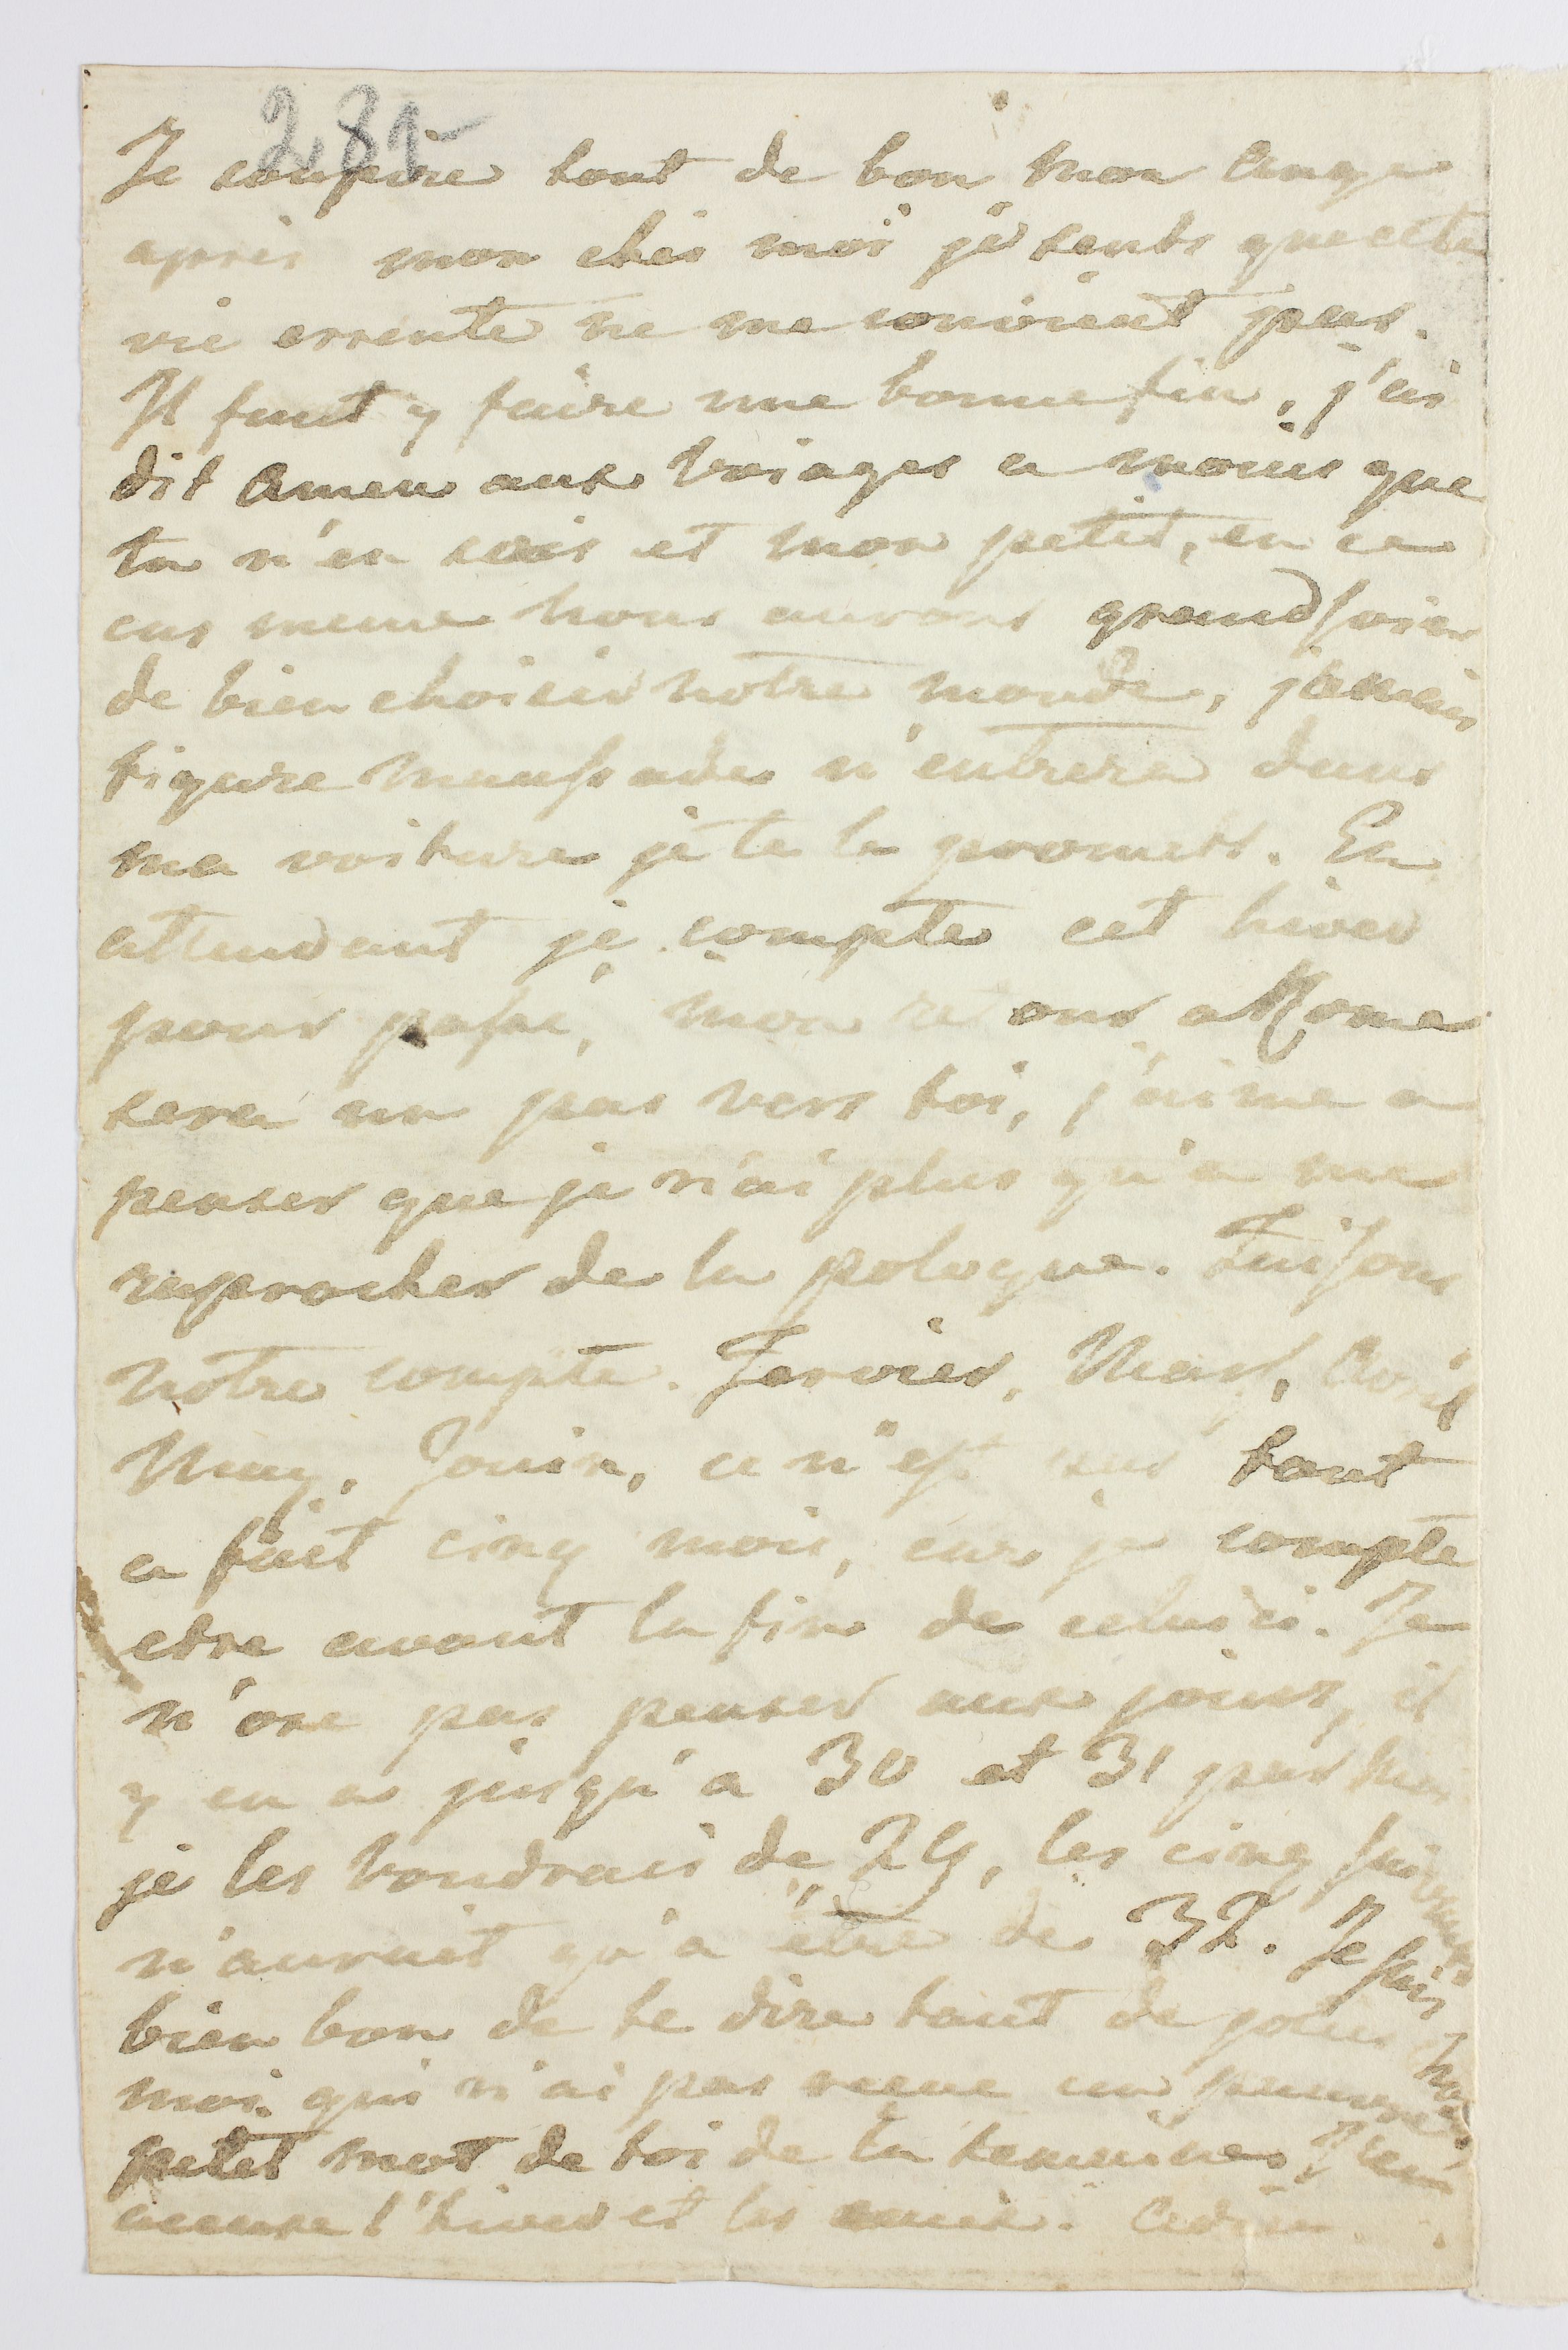 281
Je soupire tout de bon mon Ange
apres mon chés moi je sents que cette
vie errente ne me convient pas.
Il faut y faire une bonne fin, j'ai
dit Amen aux voiages a moins que
tu n'en sois et mon petit, en ce
cas meme nous aurons grand soin
de bien choisir notre monde, jamais
figure maussade n'entrera dans
ma voiture je te le promets. En
attendant je compte cet hiver
pour passé, mon re our a Rome
sera un pas vers toi, j'aime a
penser que je n'ai plus qu'a me
raprocher de la pologne. Faisons
notre compte. Fevrier, Mars, Avril
May, Jouin, ce n'est pas tout
a fait cinq mois, car je compte
etre avant la fin de celui ci. Je
n'ose pas penser aux jours, il
y en a jusqu'a 30 et 31 par moi
je les voudrais de 29, les cinq suivants
n'aurait qu'a être de 32. Je suis
bien bon de te dire tant de
moi qui n'ai pas recue un pauvre
petit mot de toi de la semaine. J'en
accuse l'hiver et les . Adieu